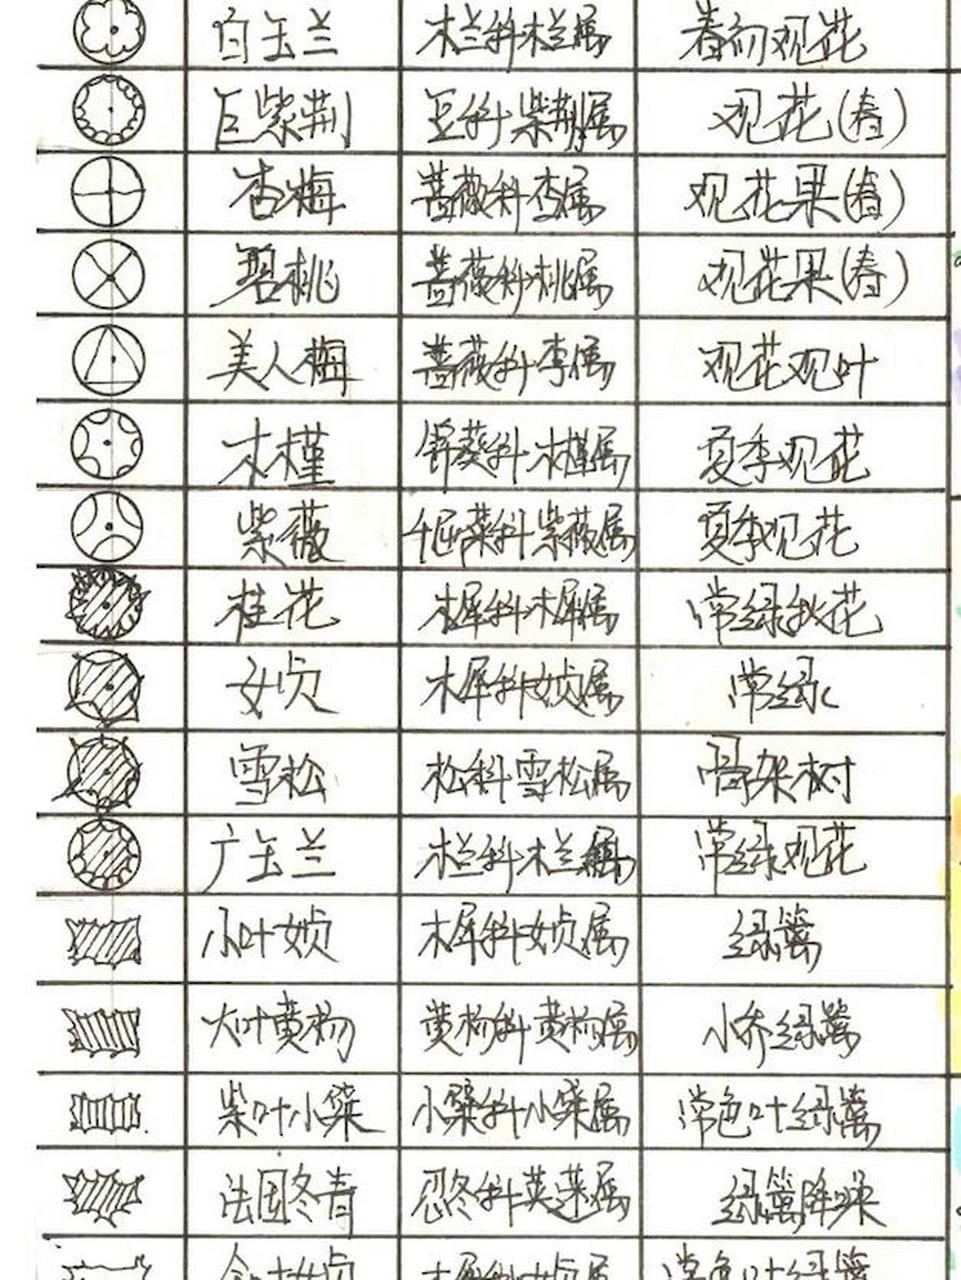 白玉兰 木兰科木兰属 春初观花
巨紫荆 豆科紫荆属 观花(春)
杏梅 蔷薇科杏属 观花果(春)
碧桃 蔷薇科桃属 观花果(春)
美人梅 蔷薇科李属 观花观叶
木槿 锦葵科木槿属 夏季观花
紫薇 千屈菜科紫薇属 夏季观花
桂花 木犀科木犀属 常绿秋花
女贞 木犀科女贞属 常绿
雪松 松科雪松属 骨架树
广玉兰 木兰科木兰属 常绿观花
小叶女贞 木犀科女贞属 绿篱
大叶黄杨 黄杨科黄杨属 小乔绿篱
紫叶小檗 小檗科小檗属 常色叶绿篱
法国冬青 忍冬科荚蒾属 绿篱降噪
金叶女贞 木犀科女贞属 常色叶绿篱